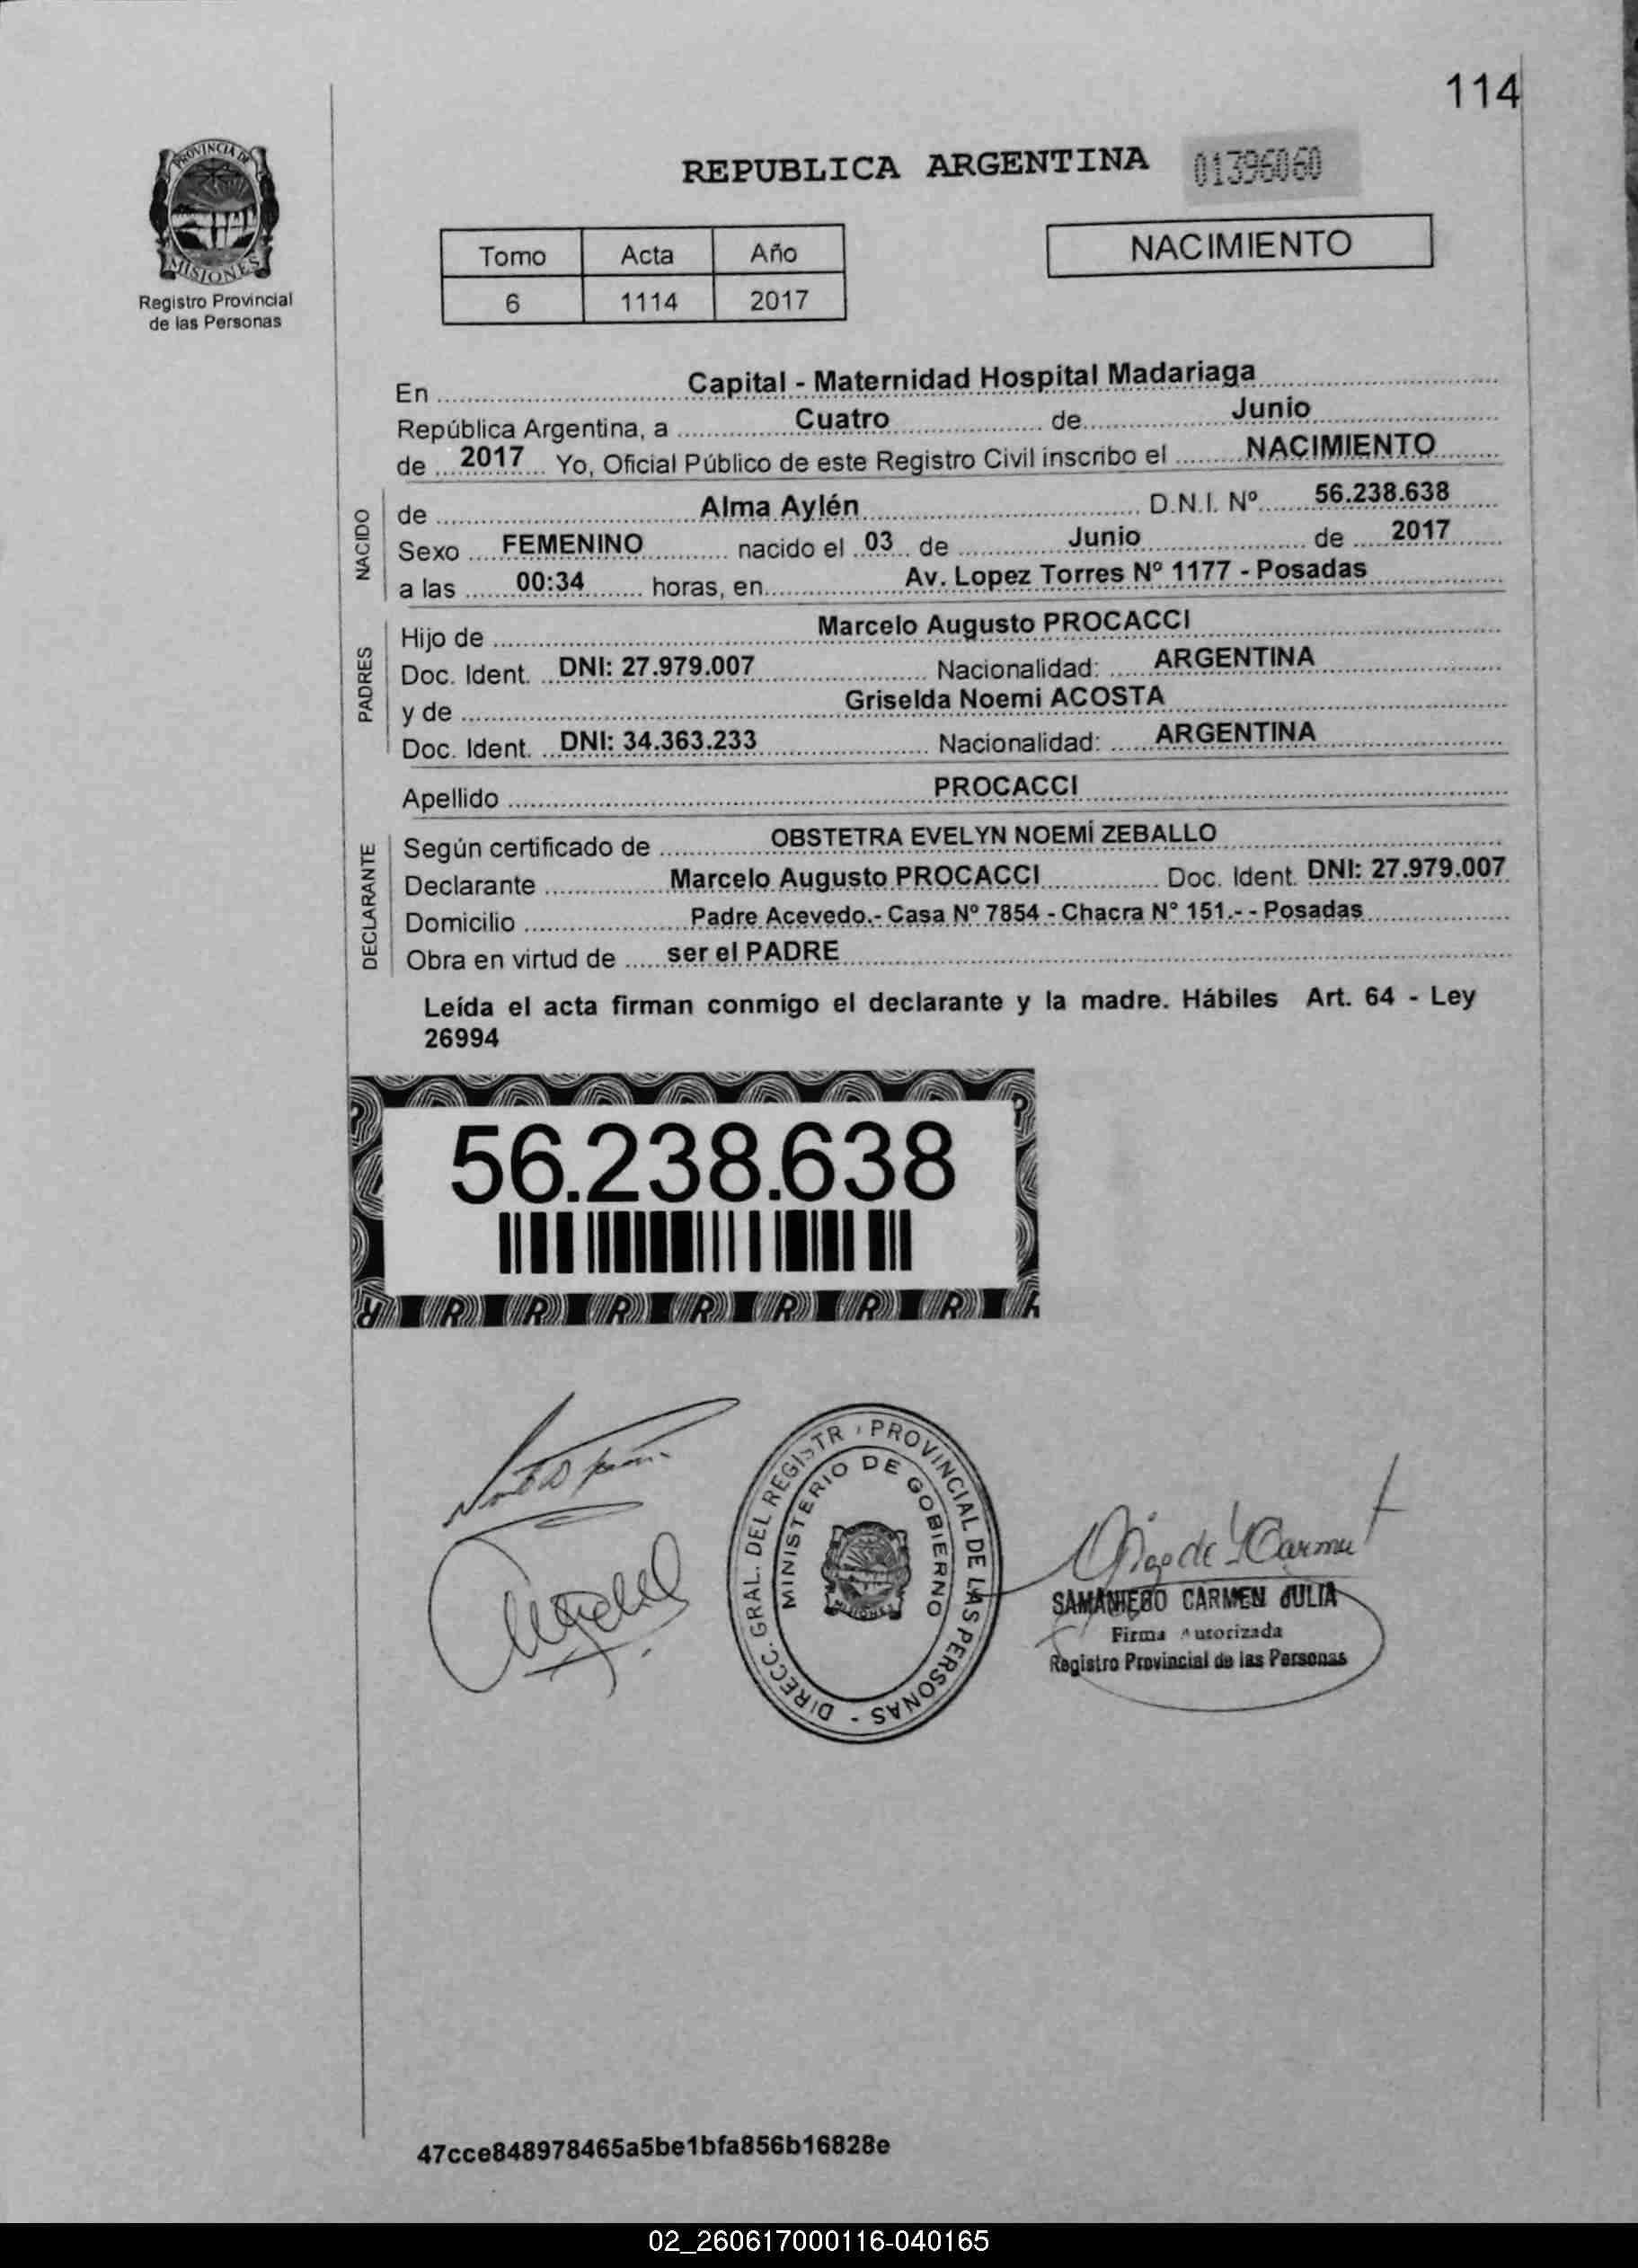 114
PROVINCIA DE
MISIONES
Registro Provincial
de las Personas
REPUBLICA ARGENTINA 01396060
Tomo Acta Año
6 1114 2017
NACIMIENTO
En Capital - Maternidad Hospital Madariaga
República Argentina, a Cuatro de Junio
de 2017 Yo, Oficial Público de este Registro Civil inscribo el NACIMIENTO
NACIDO
de Alma Aylén D.N.I. Nº 56.238.638
Sexo FEMENINO nacido el 03 de Junio de 2017
a las 00:34 horas, en Av. Lopez Torres Nº 1177 - Posadas
PADRES
Hijo de Marcelo Augusto PROCACCI
Doc. Ident. DNI: 27.979.007 Nacionalidad: ARGENTINA
y de Griselda Noemi ACOSTA
Doc. Ident. DNI: 34.363.233 Nacionalidad: ARGENTINA
Apellido PROCACCI
DECLARANTE
Según certificado de OBSTETRA EVELYN NOEMÍ ZEBALLO
Declarante Marcelo Augusto PROCACCI Doc. Ident. DNI: 27.979.007
Domicilio Padre Acevedo.- Casa Nº 7854 - Chacra N° 151.- - Posadas
Obra en virtud de ser el PADRE
Leída el acta firman conmigo el declarante y la madre. Hábiles Art. 64 - Ley
26994
56.238.638
DIRECC. GRAL. DEL REGISTR PROVINCIAL DE LAS PERSONAS -
MINISTERIO DE GOBIERNO
MISIONES
SAMANIEGO CARMEN JULIA
Firma Autorizada
Registro Provincial de las Personas
47cce848978465a5be1bfa856b16828e
02_260617000116-040165